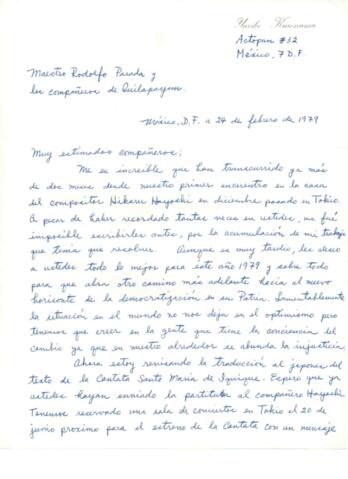 Yuriko Kuronuma
Actopan #32
México, 7 D.F.
Maestro Rodolfo Parada y
los compañeros de Quilapayun.
México, D.F. a 24 de febrero de 1979
Muy estimados compañeros:
Me es increíble que han transcurrido ya más
de dos meses desde nuestro primer encuentro en la casa
del compositor Hikaru Hayashi en diciembre pasado en Tokio.
A pesar de haber recordado tantas veces en ustedes, me fué
imposible escribirles antes, por la acumulación de mi trabajo
que tenía que resolver. Aunque es muy tardío, les deseo
a ustedes todo lo mejor para este año 1979 y sobre todo
para que abra otro camino más adelante hacia el nuevo
horizonte de la democratización en su Patria. Lamentablemente
la situación en el mundo no nos deja en el optimismo pero
tenemos que creer en la gente que tiene la conciencia del
cambio ya que en nuestro alrededor se abunda la injusticia.
Ahora estoy revisando la traducción al japones del
texto de la Cantata Santa María de Iquique. Espero que ya
ustedes hayan enviado la partitura al compañero Hayashi.
Tenemos reservado una sala de conciertos en Tokio el 20 de
junio proximo para el estreno de la Cantata con un mensaje